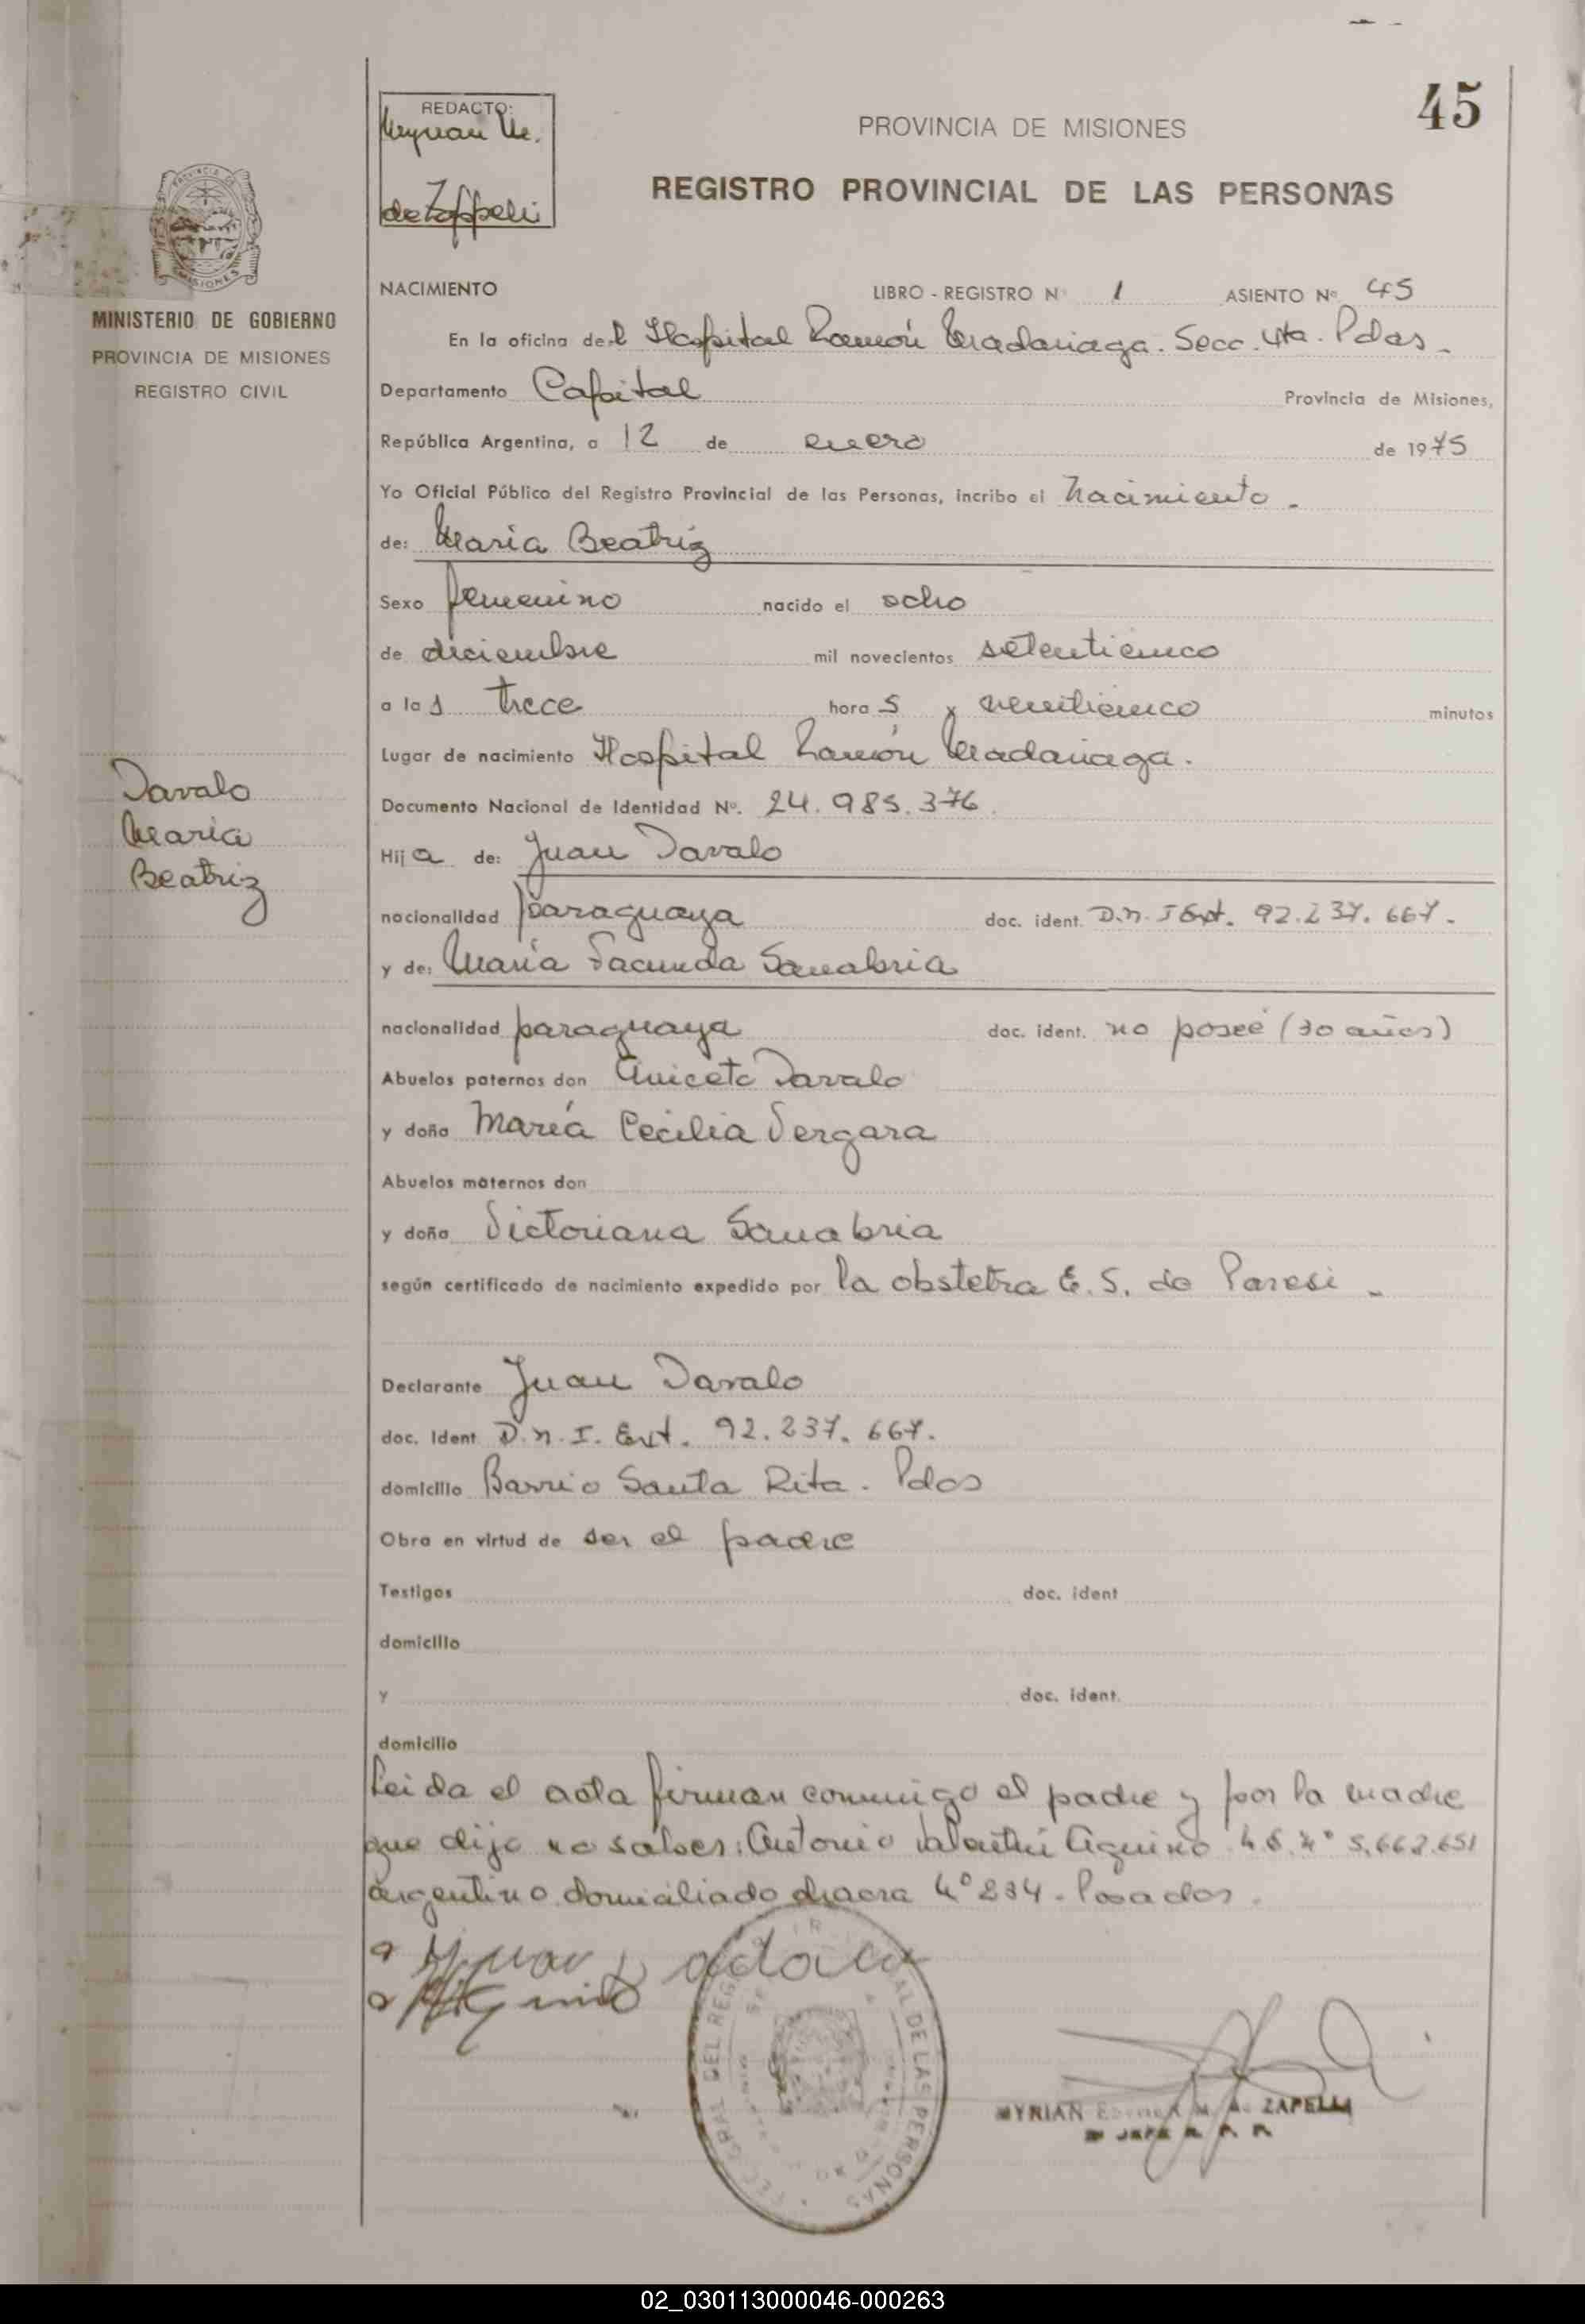 45
REDACTO:
Myrian M.
de Zappeli
PROVINCIA DE MISIONES
REGISTRO PROVINCIAL DE LAS PERSONAS
MINISTERIO DE GOBIERNO
PROVINCIA DE MISIONES
REGISTRO CIVIL
NACIMIENTO LIBRO - REGISTRO Nº 1 ASIENTO Nº 45
En la oficina del Hospital Ramón Madariaga. Secc. 4ta. Pdas.
Departamento Capital Provincia de Misiones,
República Argentina, a 12 de enero de 1975
Yo Oficial Público del Registro Provincial de las Personas, incribo el nacimiento.
de: María Beatriz
Sexo femenino nacido el ocho
de diciembre mil novecientos setenticinco
a las trece horas y veinticinco minutos
Lugar de nacimiento Hospital Ramón Madariaga.
Documento Nacional de Identidad Nº. 24.985.376.
Davalo
María
Beatriz
Hija de: Juan Davalo
nacionalidad paraguaya doc. ident. D.N.I Ext. 92.237.667.
y de: María Facunda Sanabria
nacionalidad paraguaya doc. ident. no poseé (30 años)
Abuelos paternos don Aniceto Davalo
y doña María Cecilia Vergara
Abuelos maternos don
y doña Victoriana Sanabria
según certificado de nacimiento expedido por la obstetra E. S. de Paresi.
Declarante Juan Davalo
doc. Ident D.N.I. Ext. 92.237.667.
domicilio Barrio Santa Rita. Pdas
Obra en virtud de ser el padre
Testigos doc. ident
domicilio
y doc. ident.
domicilio
Leida el acta firman conmigo el padre y por la madre
que dijo no saber: Antonio Valentín Aquino. L.E. Nº 5.662.651
argentino domiciliado chacra Nº 234. Posadas.
DEL REGISTRO DE LAS PERSONAS
MYRIAN ZAPELLI
JEFE R. P. P.
02_030113000046-000263